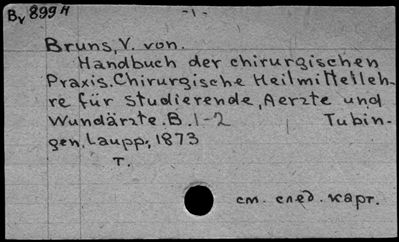 Bv 899 H
-1-
Bruns, V. von.
Handbuch der chirurgischen
Praxis. Chirurgische Heilmittelleh-
re für Studierende, Aerzte und
Wundärzte. B. 1-2 Tubin-
gen, Laupp, 1873
T.
см. след. карт.